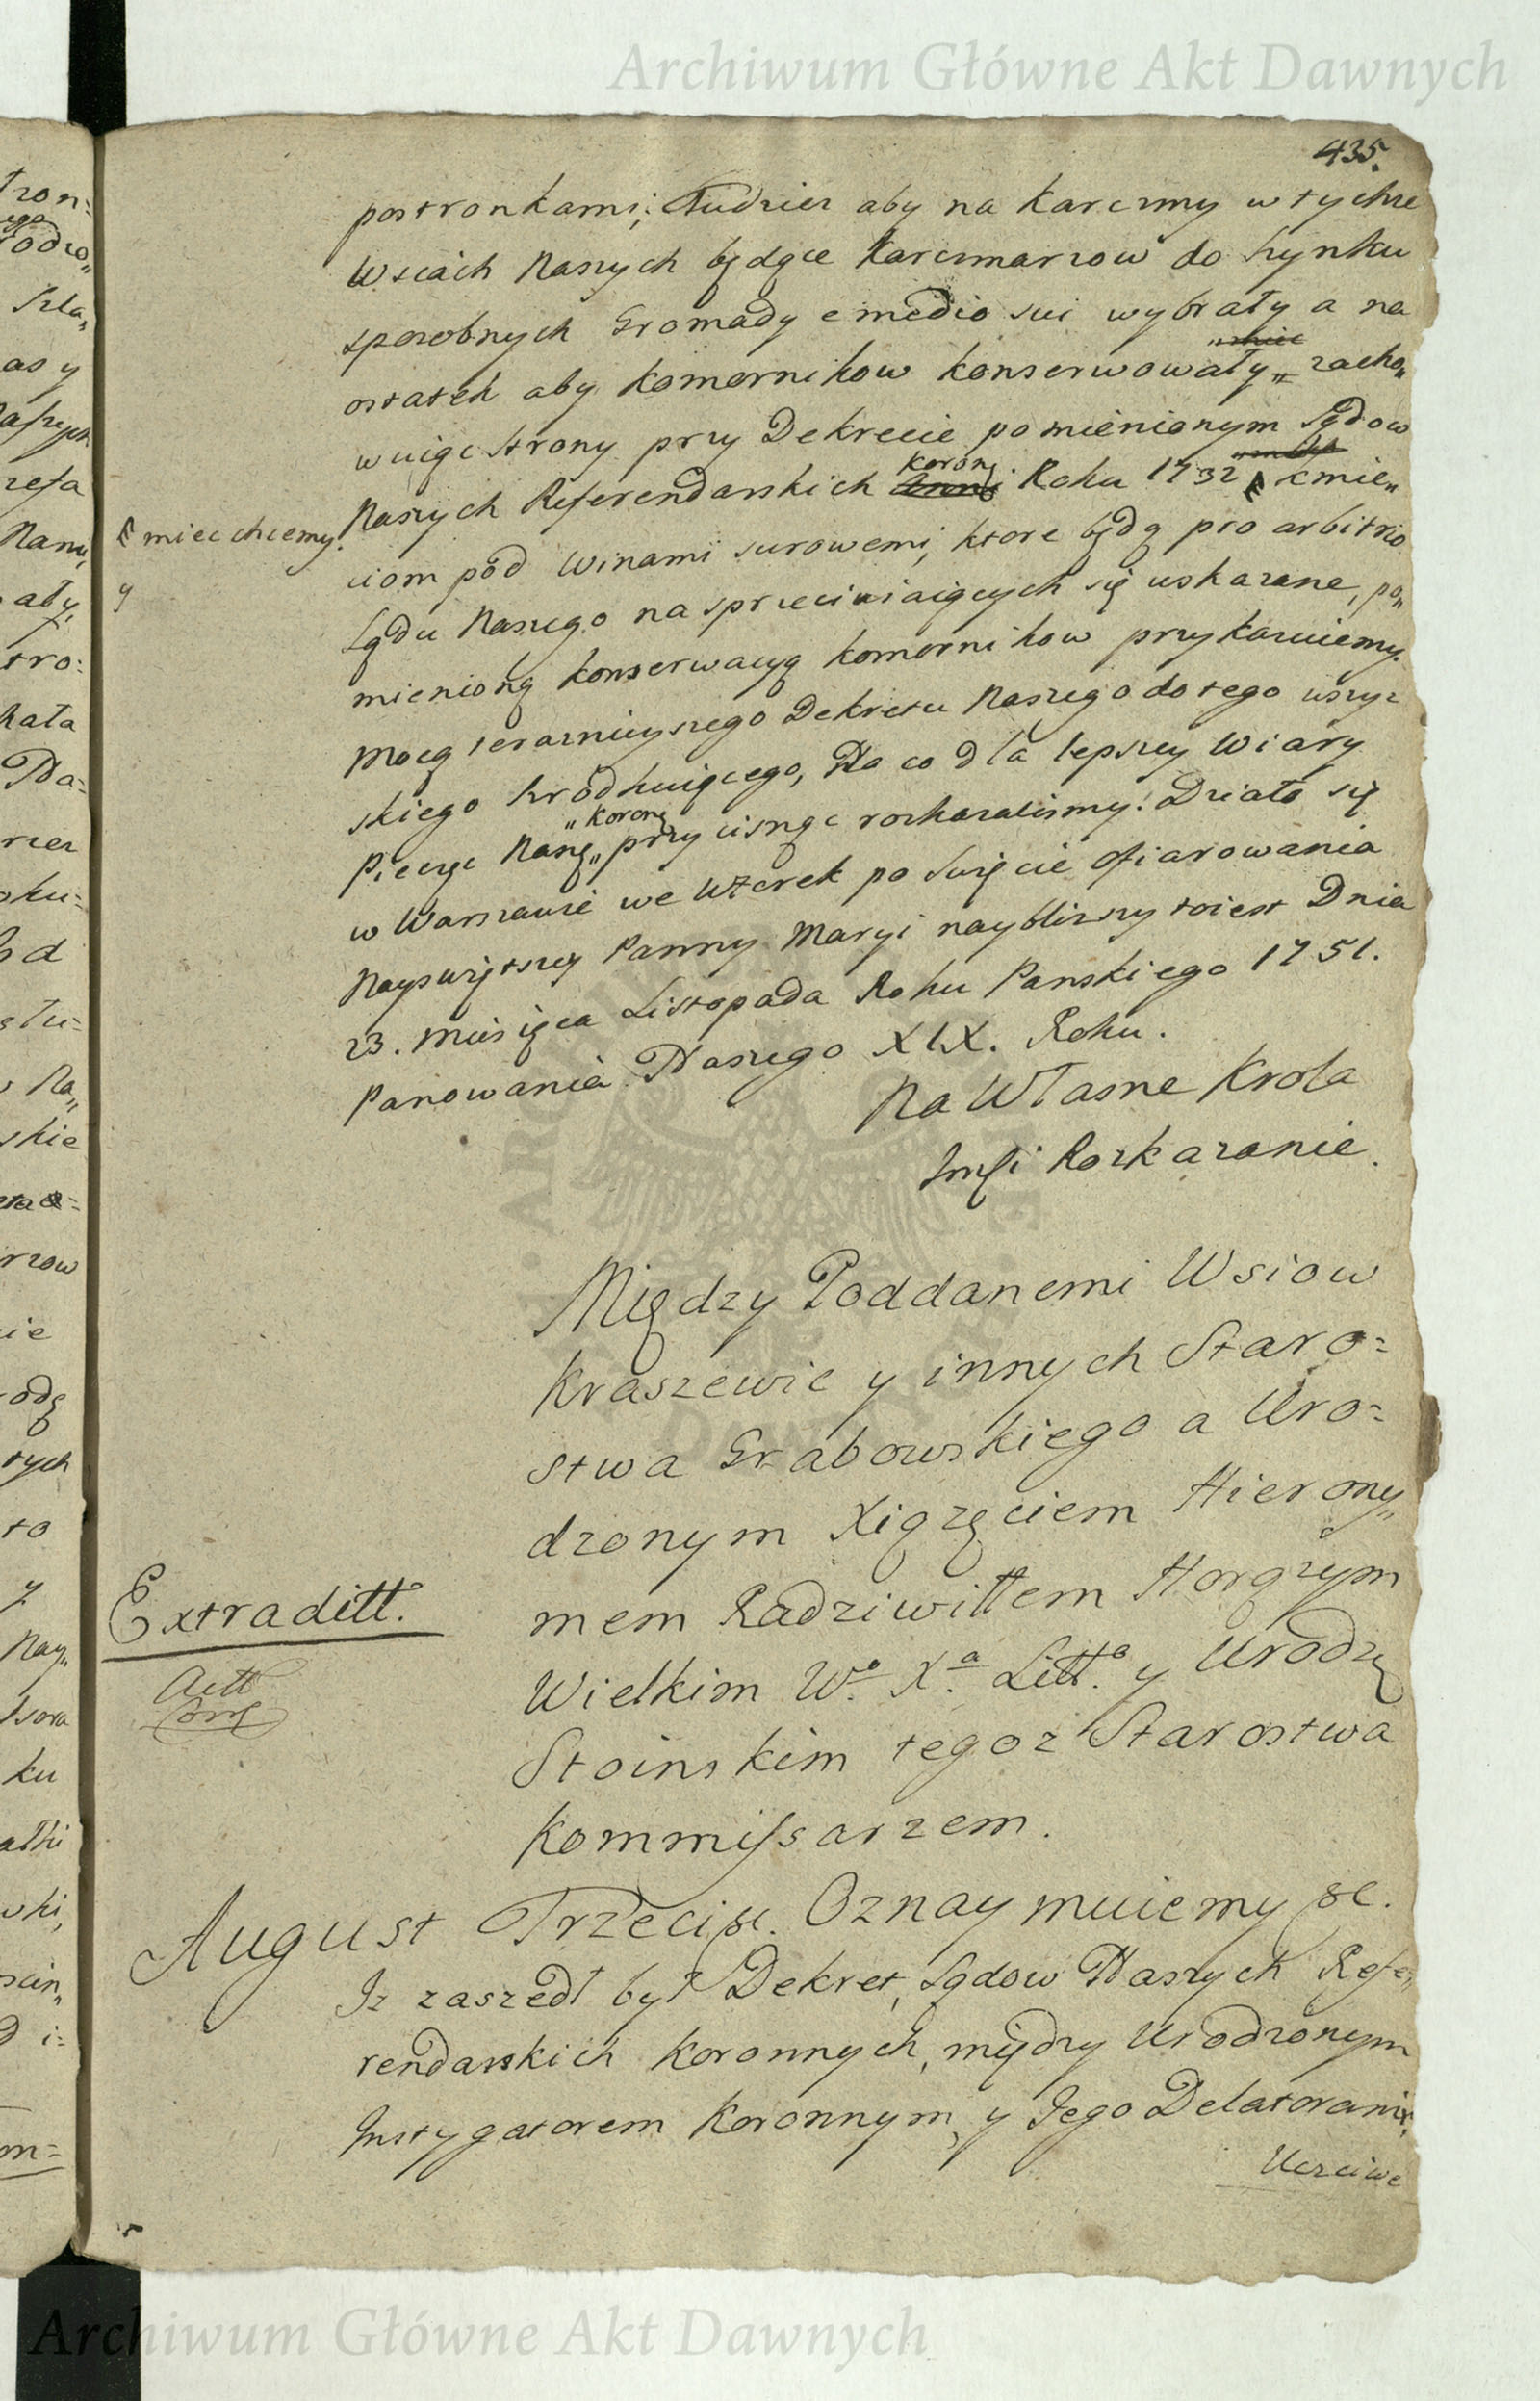 Archiwum Główne Akt Dawnych
435.
postronkami; Tudziez aby na Karczmy w tychze
Wsiach Naszych będące Karczmarzow do szynku
sposobnych Gromady e medio sui wybrały a na
ostatek aby Komornikow konserwowały„ zacho„
wuiąc strony przy Dekrecie pomienionym Sądow
Koron
Naszych Referendarskich Roku 1732 kmie„
miec chcemy.
y
ciom pod Winami surowemi, ktore będą pro arbitrio
Sądu Naszego na sprzeciwiaiących się uskazane, po„
mienioną konserwacyą komornikow przykazuiemy.
Mocą terazniejszego Dekretu Naszego do tego wszyz
skiego srodkuiącego, Na co dla lepszey Wiary
„Koronę
Pieczęc Naszę„ przycisnąc rozkazalismy. Działo się
w Warszawie we Wtorek po Swięcie Ofiarowania
Nayswiętszey Panny Maryi naybliższy toiest Dnia
23. Miesięca Listopada Roku Panskiego 1751.
Panowania Naszego XIX. Roku.
Na Własne Krola
Jmsi Rozkazanie.
Między Poddanemi Wsiow
Kraszewic y innych Staro=
stwa Grabowskiego a Uro=
dzonym Xiązęciem Hierony„
mem Radziwiłłem Horążym
Wielkim Wo. Xa. Litto. y Urodzę
Stoinskim tegoz Starostwa
Kommissarzem.
Extraditt.
Actt
Corr
August Trzeci &c. Oznaymuiemy &c.
Iz zaszedł był Dekret, Sądow Naszych Refe„
rendarskich Koronnych, między Urodzonym
Instygatorem Koronnym, y Jego Delatorami,
Uczciwe
Archiwum Główne Akt Dawnych